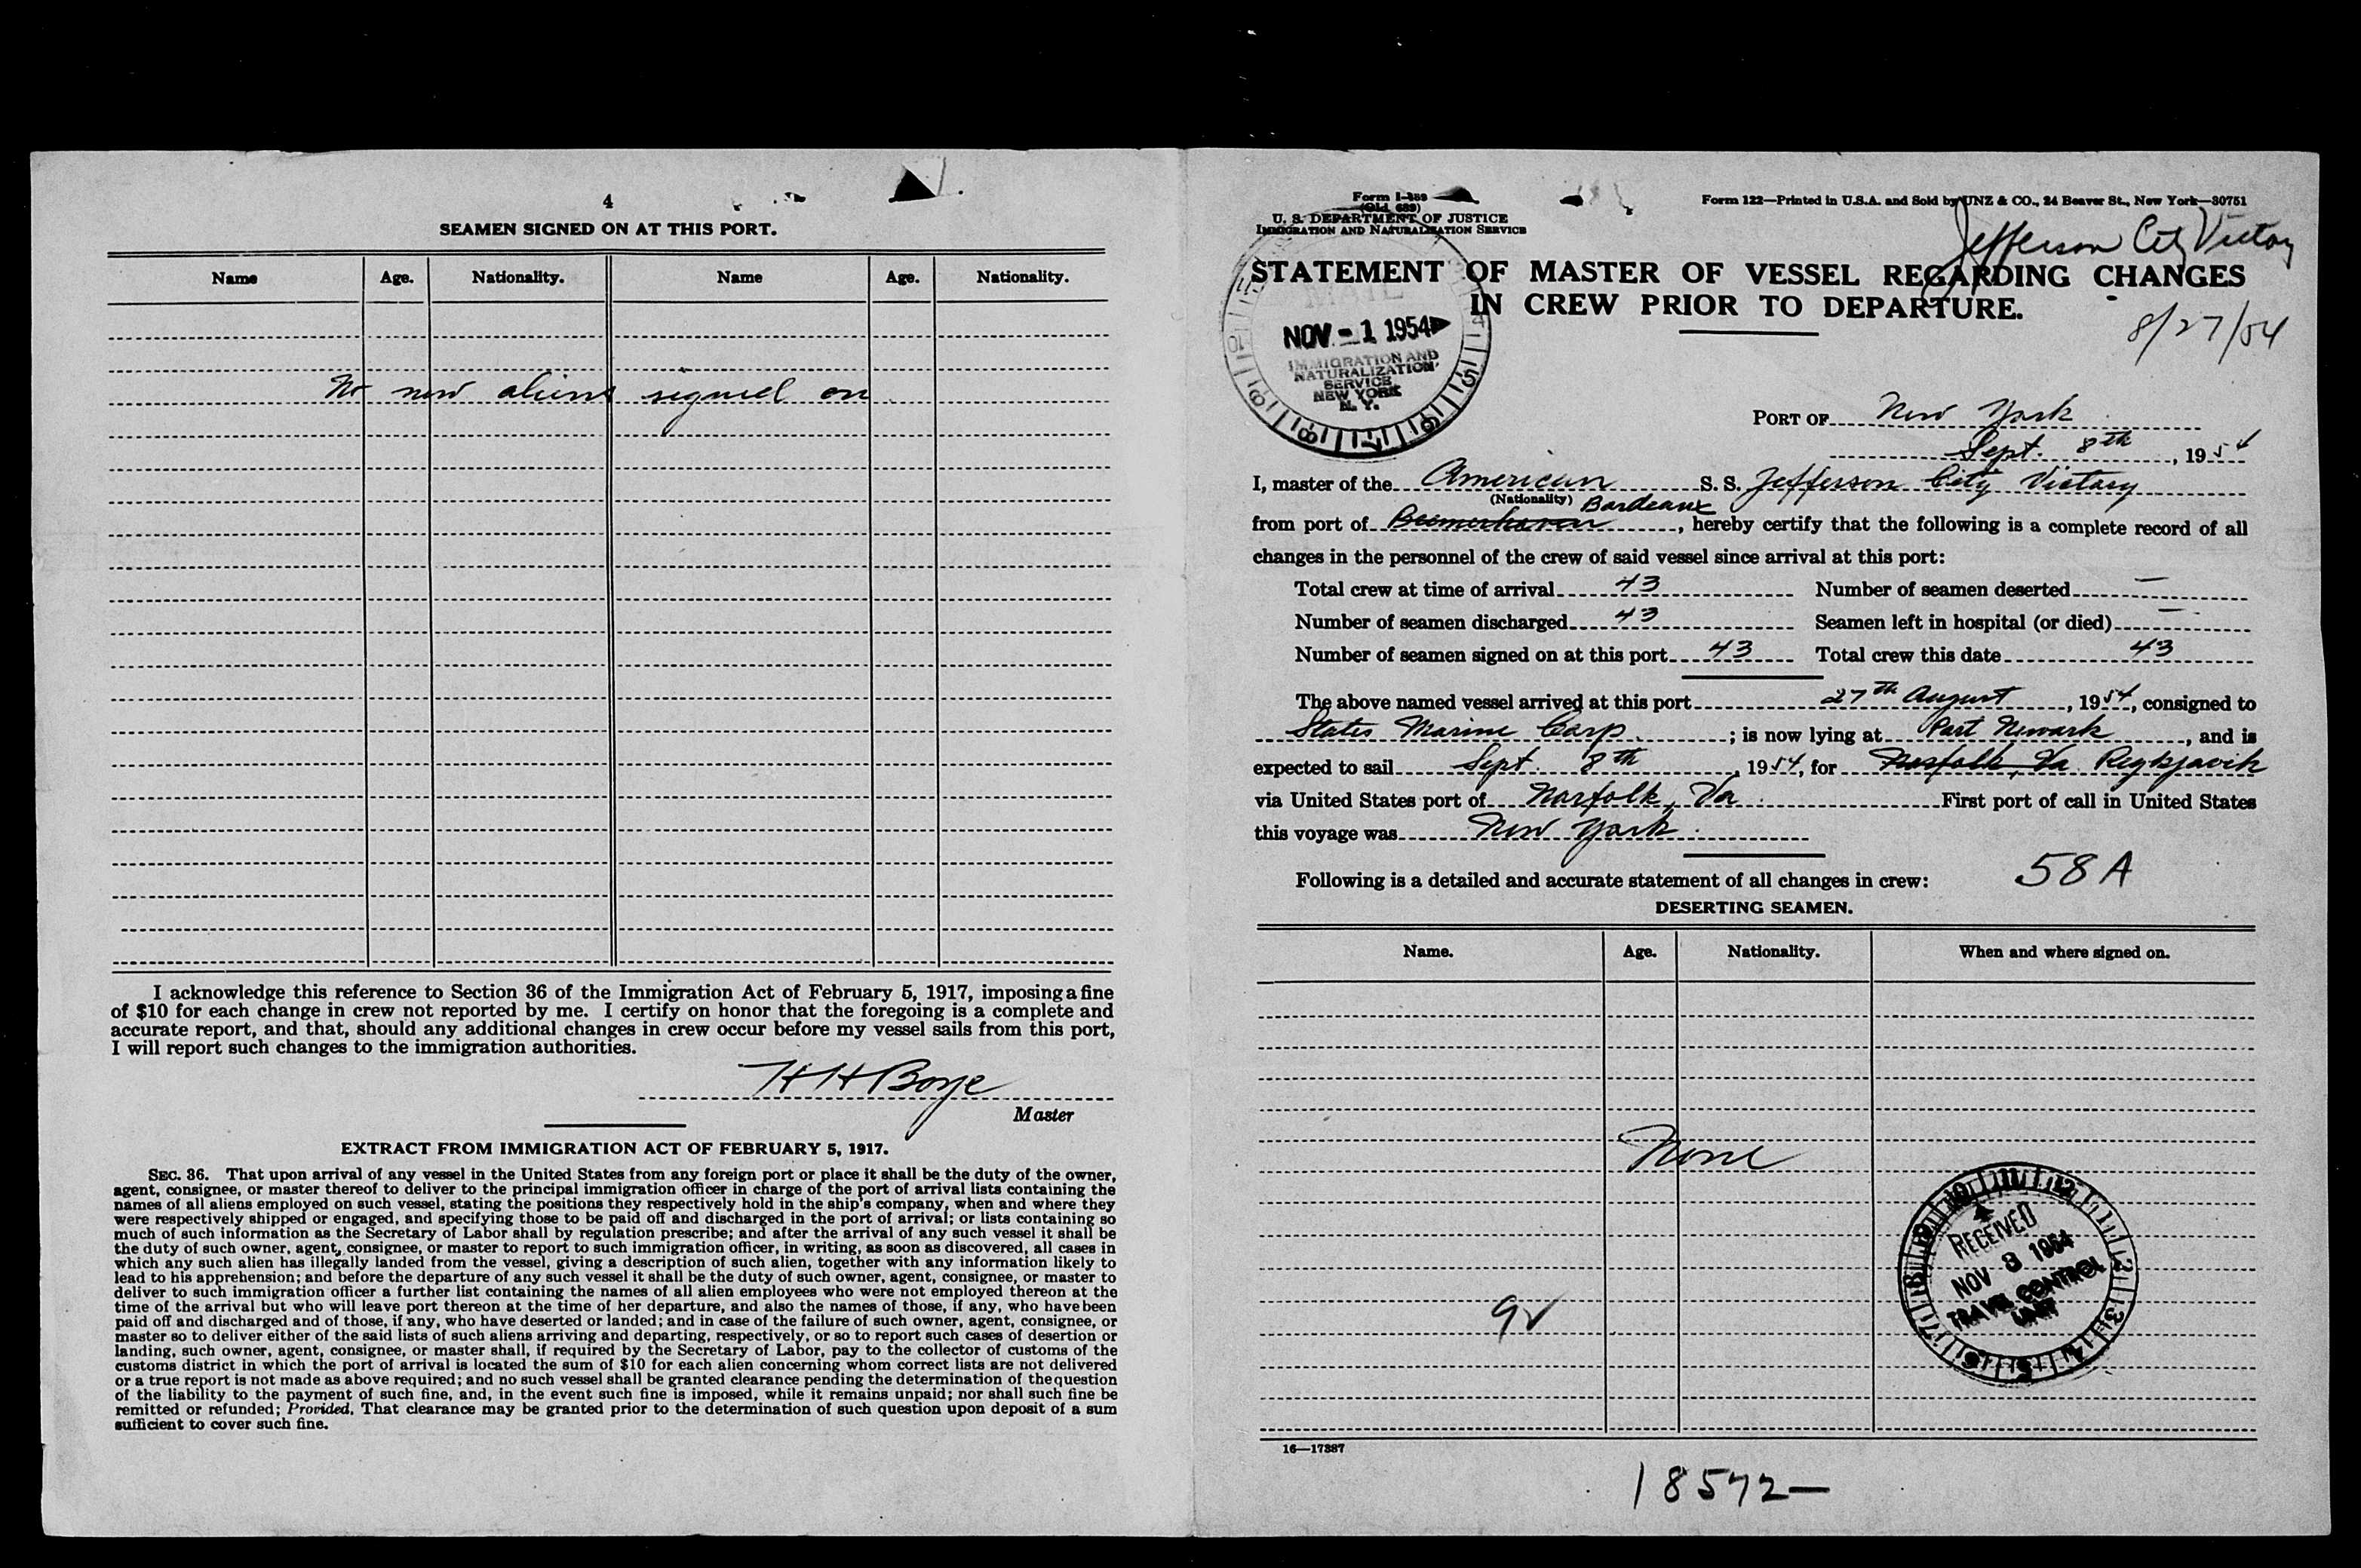 4
SEAMEN SIGNED ON AT THIS PORT.
Name Age. Nationality. Name Age. Nationality.
No new aliens signed on
I acknowledge this reference to Section 36 of the Immigration Act of February 5, 1917, imposing a fine
of $10 for each change in crew not reported by me. I certify on honor that the foregoing is a complete and
accurate report, and that, should any additional changes in crew occur before my vessel sails from this port,
I will report such changes to the immigration authorities.
H H Boye
Master
EXTRACT FROM IMMIGRATION ACT OF FEBRUARY 5, 1917.
SEC. 36. That upon arrival of any vessel in the United States from any foreign port or place it shall be the duty of the owner,
agent, consignee, or master thereof to deliver to the principal immigration officer in charge of the port of arrival lists containing the
names of all aliens employed on such vessel, stating the positions they respectively hold in the ship's company, when and where they
were respectively shipped or engaged, and specifying those to be paid off and discharged in the port of arrival; or lists containing so
much of such information as the Secretary of Labor shall by regulation prescribe; and after the arrival of any such vessel it shall be
the duty of such owner, agent, consignee, or master to report to such immigration officer, in writing, as soon as discovered, all cases in
which any such alien has illegally landed from the vessel, giving a description of such alien, together with any information likely to
lead to his apprehension; and before the departure of any such vessel it shall be the duty of such owner, agent, consignee, or master to
deliver to such immigration officer a further list containing the names of all alien employees who were not employed thereon at the
time of the arrival but who will leave port thereon at the time of her departure, and also the names of those, if any, who have been
paid off and discharged and of those, if any, who have deserted or landed; and in case of the failure of such owner, agent, consignee, or
master so to deliver either of the said lists of such aliens arriving and departing, respectively, or so to report such cases of desertion or
landing, such owner, agent, consignee, or master shall, if required by the Secretary of Labor, pay to the collector of customs of the
customs district in which the port of arrival is located the sum of $10 for each alien concerning whom correct lists are not delivered
or a true report is not made as above required; and no such vessel shall be granted clearance pending the determination of the question
of the liability to the payment of such fine, and, in the event such fine is imposed, while it remains unpaid; nor shall such fine be
remitted or refunded; Provided, That clearance may be granted prior to the determination of such question upon deposit of a sum
sufficient to cover such fine.
Form I-489
(Old 689)
U. S. DEPARTMENT OF JUSTICE
IMMIGRATION AND NATURALIZATION SERVICE
Form 122—Printed in U.S.A. and Sold by UNZ & CO., 24 Beaver St., New York—30751
Jefferson City Victory
STATEMENT OF MASTER OF VESSEL REGARDING CHANGES
IN CREW PRIOR TO DEPARTURE.
8/27/54
MAIL
NOV - 1 1954
IMMIGRATION AND
NATURALIZATION
SERVICE
NEW YORK
N. Y.
PORT OF New York
Sept. 8th, 1954
I, master of the American S. S. Jefferson City Victory
(Nationality) Bordeaux
from port of Bremerhaven, hereby certify that the following is a complete record of all
changes in the personnel of the crew of said vessel since arrival at this port:
Total crew at time of arrival 43 Number of seamen deserted —
Number of seamen discharged 43 Seamen left in hospital (or died) —
Number of seamen signed on at this port 43 Total crew this date 43
The above named vessel arrived at this port 27th August, 1954, consigned to
States Marine Corp.; is now lying at Port Newark, and is
expected to sail Sept. 8th, 1954, for Norfolk, Va Reykjavik
via United States port of Norfolk, Va. First port of call in United States
this voyage was New York.
Following is a detailed and accurate statement of all changes in crew: 58 A
DESERTING SEAMEN.
Name. Age. Nationality. When and where signed on.
None
RECEIVED
NOV 3 1954
TRAVEL CONTROL
UNIT
16—17387
18572—